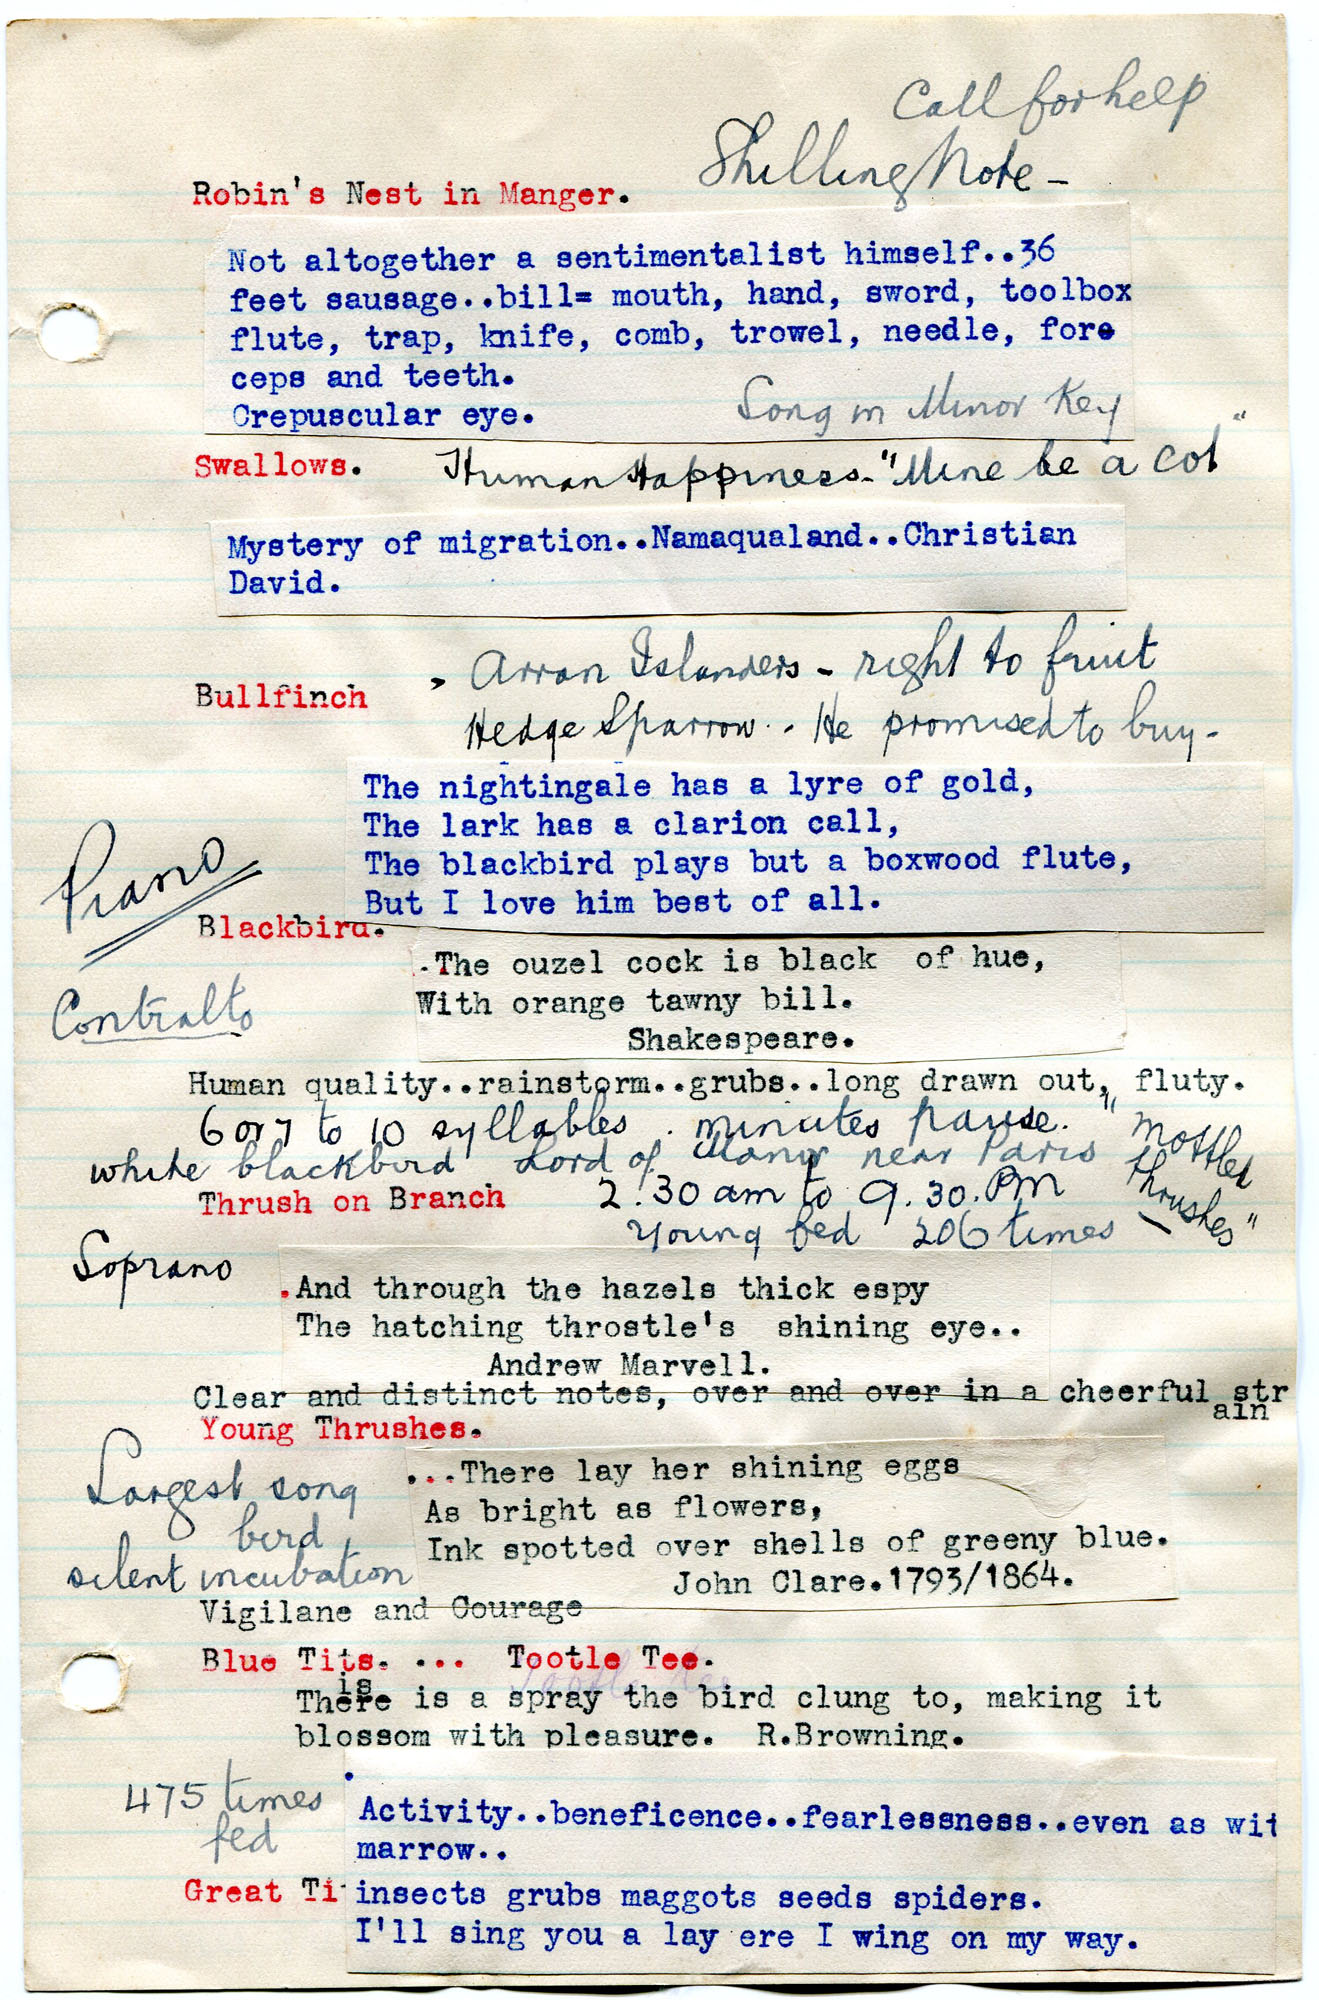 Call for help
Shilling Note -
Robin's Nest in Manger.
Not altogether a sentimentalist himself..36
feet sausage..bill= mouth, hand, sword, toolbox
flute, trap, knife, comb, trowel, needle, fore
ceps and teeth.
Crepuscular eye.
Song in Minor Key
Swallows.
Human Happiness - "Mine be a cot"
Mystery of migration..Namaqualand..Christian
David.
Arran Islanders - right to fruit
Bullfinch
Hedge Sparrow . He promised to buy -
The nightingale has a lyre of gold,
The lark has a clarion call,
The blackbird plays but a boxwood flute,
But I love him best of all.
Piano
Blackbird.
Contralto
.The ouzel cock is black of hue,
With orange tawny bill.
Shakespeare.
Human quality..rainstorm..grubs..long drawn out, fluty.
6 or 7 to 10 syllables . minutes pause.
"Mottled thrushes"
white blackbird Lord of Manor near Paris
Thrush on Branch
2.30 am to 9.30. PM
Young fed 206 times
Soprano
.And through the hazels thick espy
The hatching throstle's shining eye..
Andrew Marvell.
Clear and distinct notes, over and over in a cheerful str
ain
Young Thrushes.
Largest song
bird
silent incubation
...There lay her shining eggs
As bright as flowers,
Ink spotted over shells of greeny blue.
John Clare.1793/1864.
Vigilane and Courage
Blue Tits. ... Tootle Tee.
is
There is a spray the bird clung to, making it
blossom with pleasure. R.Browning.
475 times
fed
Activity..beneficence..fearlessness..even as wit
marrow..
Great Ti
insects grubs maggots seeds spiders.
I'll sing you a lay ere I wing on my way.